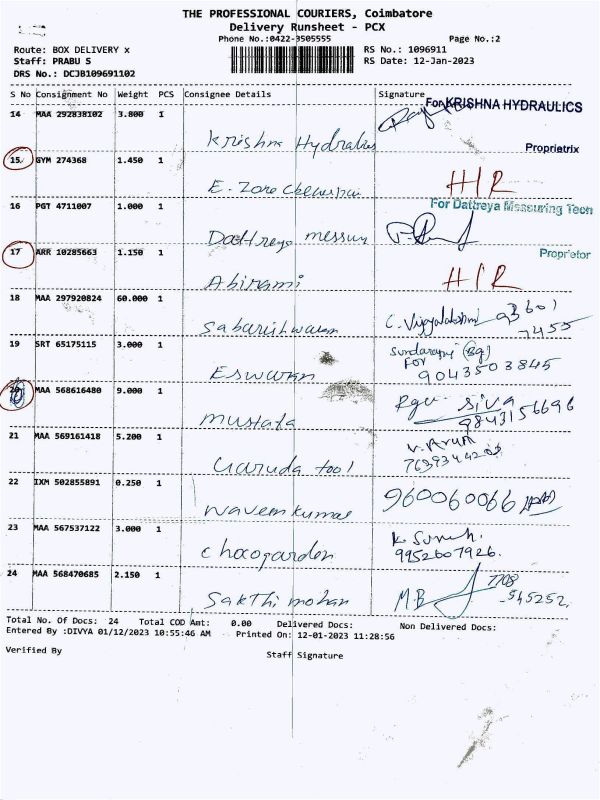 THE PROFESSIONAL COURIERS, Coimbatore
Delivery Runsheet - PCX
Phone No.:0422-3505555
Page No.:2
Route: BOX DELIVERY x
RS No.: 1096911
Staff: PRABU S
RS Date: 12-Jan-2023
DRS No.: DCJB109691102
S No Consignment No Weight PCS Consignee Details Signature
For KRISHNA HYDRAULICS
14 MAA 292838102 3.800 1
Krishna Hydralics
Proprietrix
15 GYM 274368 1.450 1
E. Zone H/R
For Dattreya Measuring Tech
16 PGT 4711007 1.000 1
Dattreya messury
Proprietor
17 ARR 10285663 1.150 1
Abirami H/R
18 MAA 297920824 60.000 1
Sabarishwaran C. Vijayalakshmi 93601
7455
19 SRT 65175115 3.000 1
Eswaran Sundarapuri (Bg)
For
9043503845
20 MAA 568616480 9.000 1
mustafa siva
9843156696
21 MAA 569161418 5.200 1
Garuda tool V. Arun
22 IXM 502855891 0.250 1
Naveenkumar 960060066
23 MAA 567537122 3.000 1
Chocogarden K. Suresh.
9952607926.
24 MAA 568470685 2.150 1
Sakthi mohan M.B 7708
545252.
Total No. Of Docs: 24 Total COD Amt: 0.00 Delivered Docs: Non Delivered Docs:
Entered By :DIVYA 01/12/2023 10:55:46 AM Printed On: 12-01-2023 11:28:56
Verified By
Staff Signature